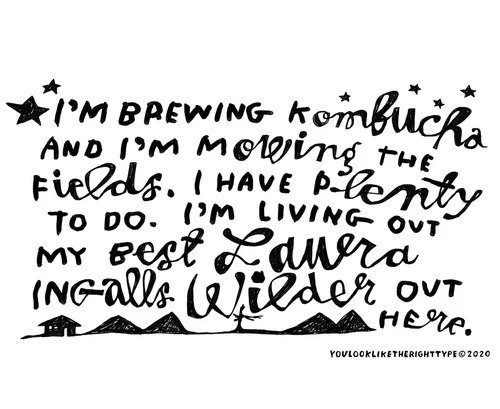 I'M BREWING Kombucha
AND I'M MOWing THE
Fields. I HAVE PLenty
TO DO. I'M LIVING OUT
MY Best Laura
INGalls Wilder OUT
HERe.
YOULOOKLIKETHERIGHTTYPE©2020